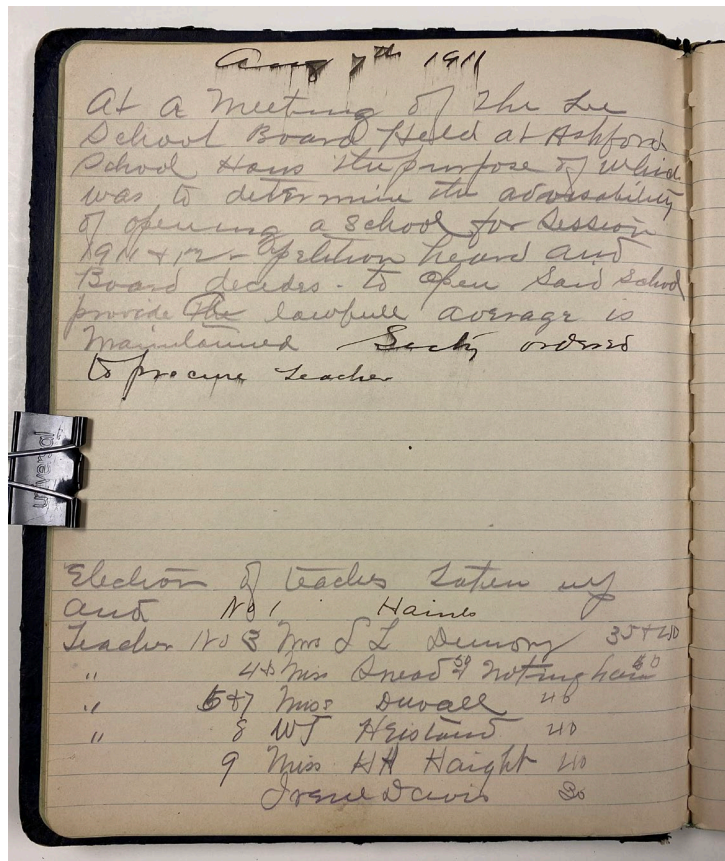 Aug 7th 1911
At a Meeting of the Lee
School Board Held at Ashford
School Hous the purpose of which
was to determine the advisability
of opening a School for Session
1911 & 12 - Apetition heard and
Board decides - to Open Said School
provide the lawfull average is
Maintained Secty ordered
to procure teacher
universal
Election of teaches taken up
and No 1 Haines
Teacher No 3 Mrs S L Demory 35 + 40
" 4 Miss Snead 50 Notingham 50
" 5 & 7 Miss Duvall 40
" 8 WJ Heistand 40
9 Miss HH Haight 40
Irene Davis 30